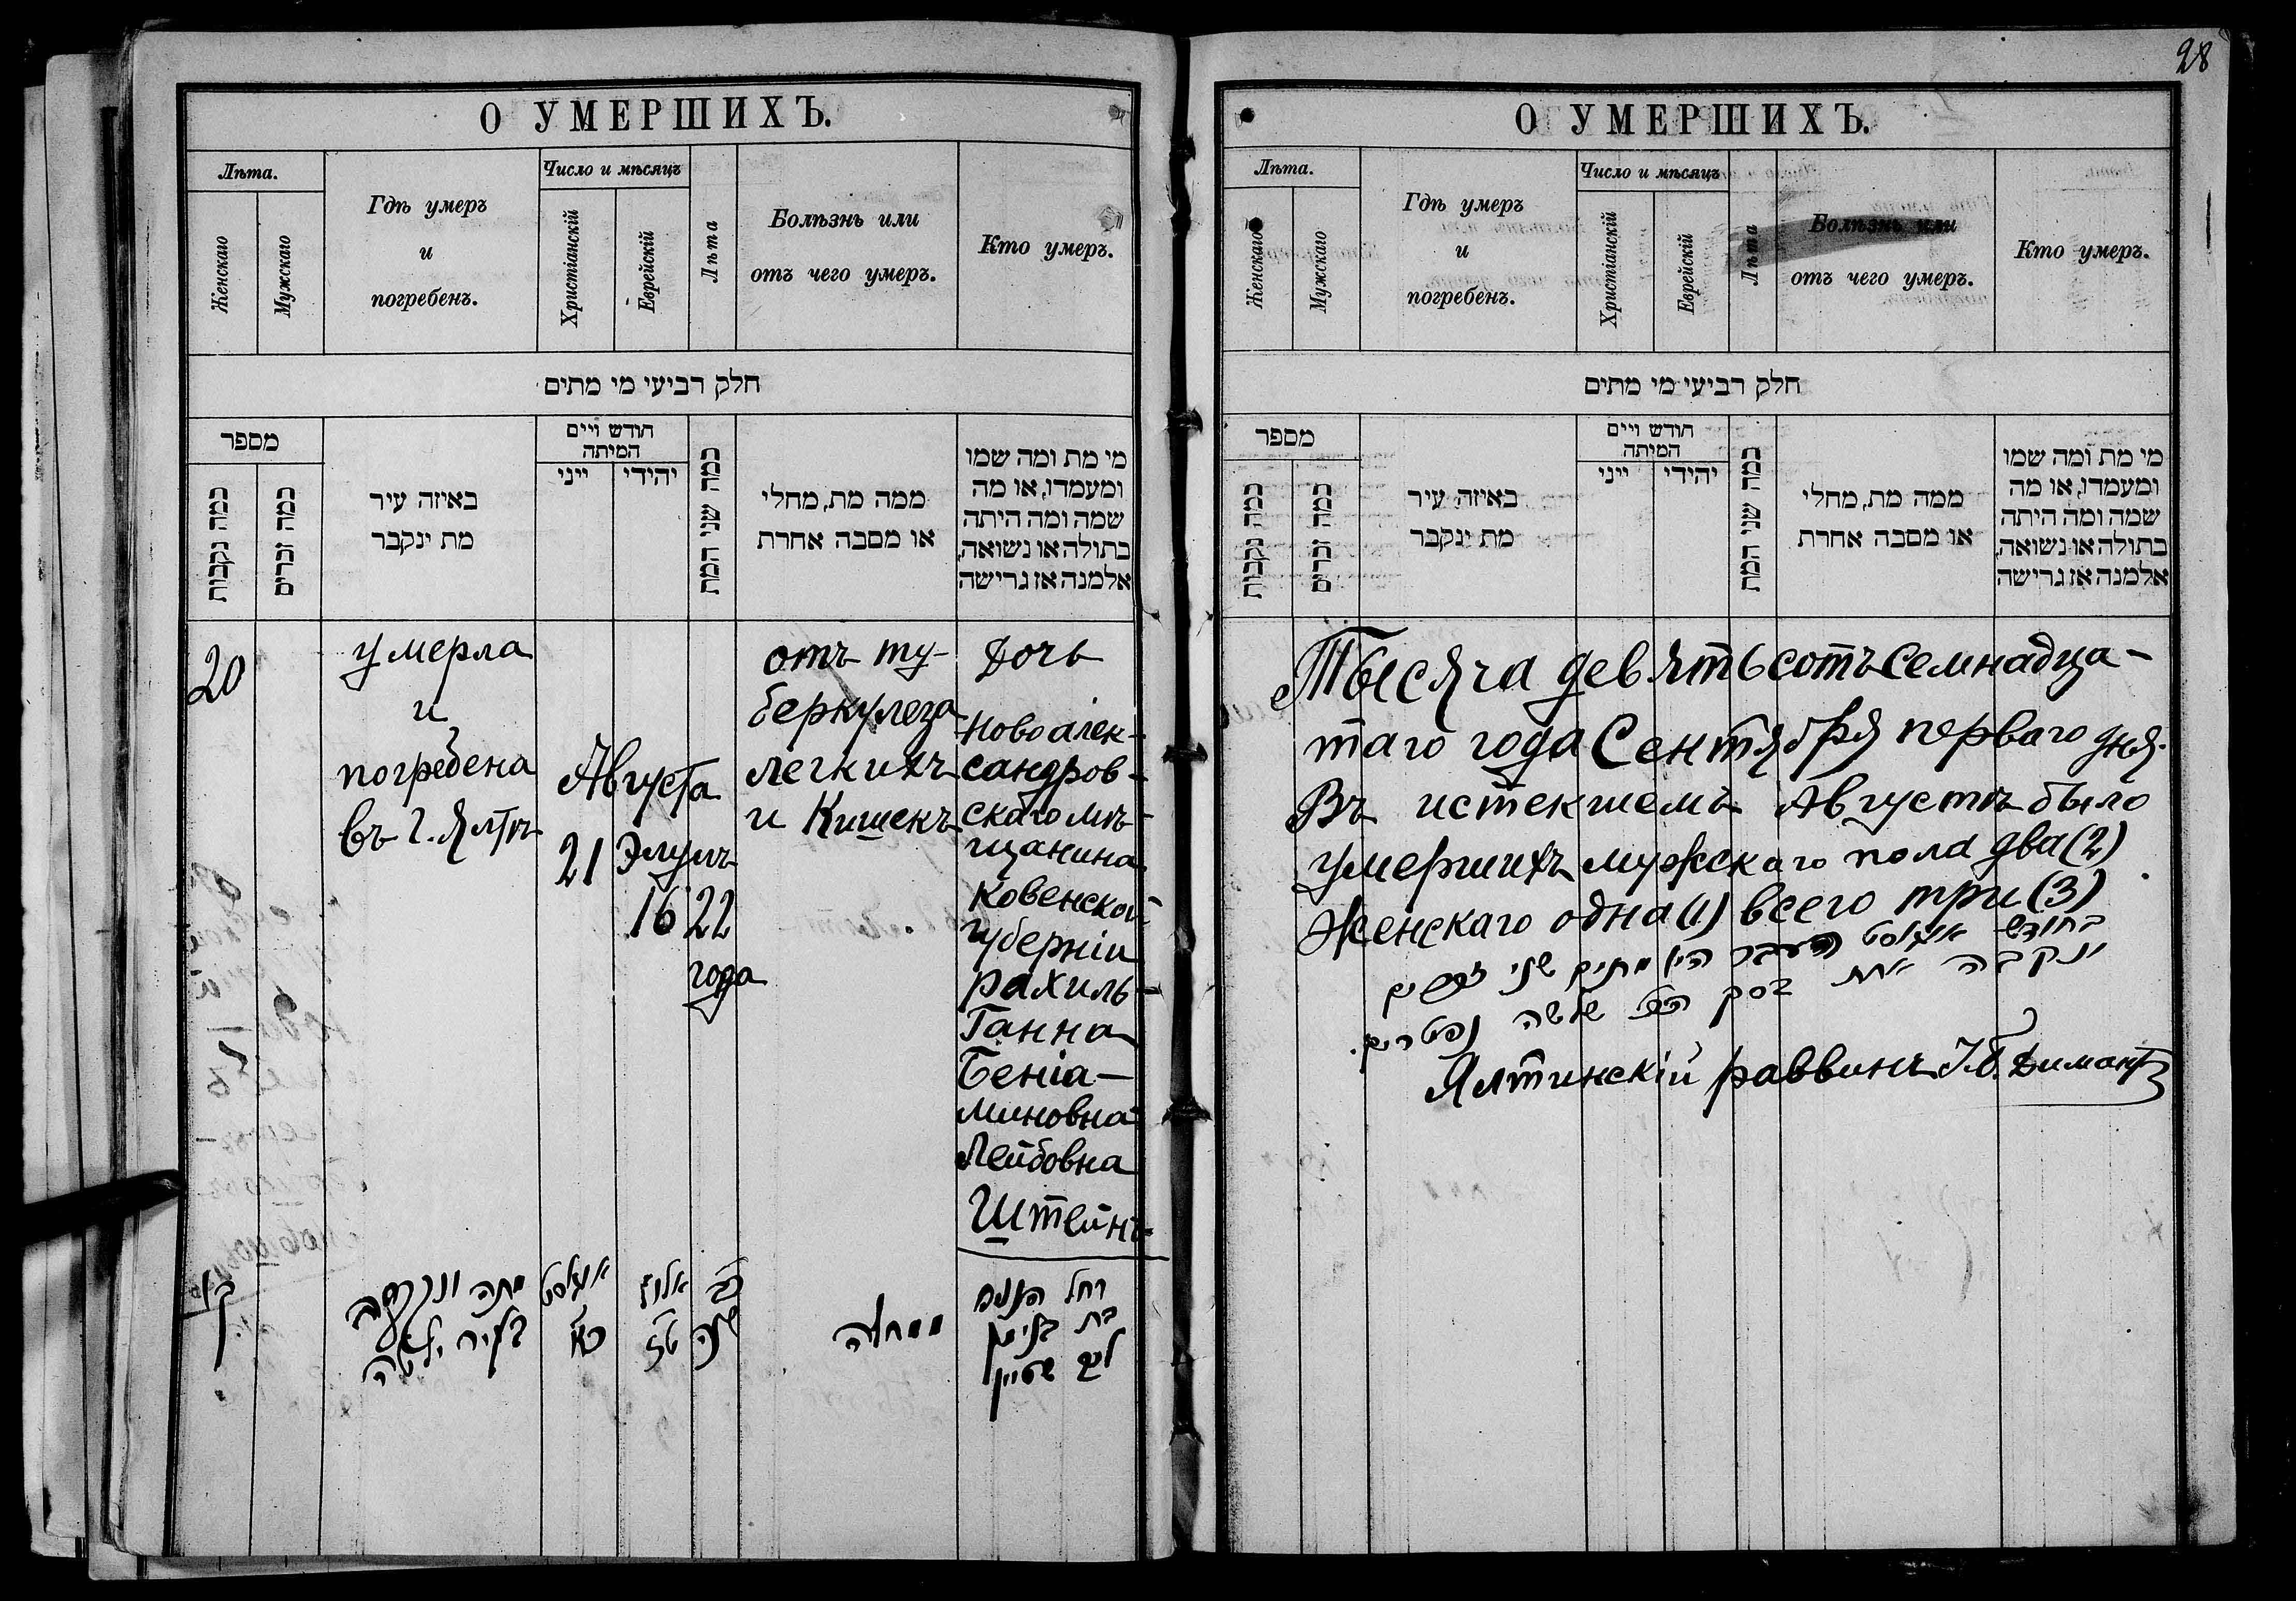 28
О УМЕРШИХЪ.
Лѣта.
Женскаго
Мужскаго
Гдѣ умеръ
и
погребенъ.
Число и мѣсяцъ
Христіанскій
Еврейскій
Лѣта
Болѣзнь или
отъ чего умеръ.
Кто умеръ.
חלק רביעי מי מתים
מספר
כמה נקבות
כמה זכרים
באיזה עיר
מת ינקבר
חודש ויים
המיתה
ייני
יהידי
כמה שני המת
ממה מת, מחלי
או מסבה אחרת
מי מת ומה שמו
ומעמדו, או מה
שמה ומה היתה
בתולה או נשואה,
אלמנה אז גרישה
20
умерла
и
погребена
въ г. Ялтѣ
Августа
21
Элулъ
16
22
года
отъ ту-
беркулеза
легкихъ
и Кишекъ
Дочь
Новоалек-
сандров-
скаго мѣ-
щанина
Ковенской
губерніи
Рахиль-
Ганна
Беніа-
миновна
Лейбовна
Штейнъ
מתה ונקברה
בעיר יאלטה
אויגוסט
כא
אלול
טז
כב
שנה
ממחלה
רחל הענע
בת בנימן
ליב שטיין
О УМЕРШИХЪ.
Лѣта.
Женскаго
Мужскаго
Гдѣ умеръ
и
погребенъ.
Число и мѣсяцъ
Христіанскій
Еврейскій
Лѣта
Болѣзнь или
отъ чего умеръ.
Кто умеръ.
חלק רביעי מי מתים
מספר
כמה נקבות
כמה זכרים
באיזה עיר
מת ינקבר
חודש ויים
המיתה
ייני
יהידי
כמה שני המת
ממה מת, מחלי
או מסבה אחרת
מי מת ומה שמו
ומעמדו, או מה
שמה ומה היתה
בתולה או נשואה,
אלמנה אז גרישה
Тысяча девятьсотъ семнадца-
таго года Сентября перваго дня.
Въ истекшемъ Августѣ было
умершихъ мужскаго пола два (2)
Женскаго одна (1) всего три (3)
בחודש אויגוסט העבר היו מתים שני זכרים
ונקבה אחת בסך הכל שלשה נפטרים.
Ялтинскій раввинъ І.Б. Димантъ